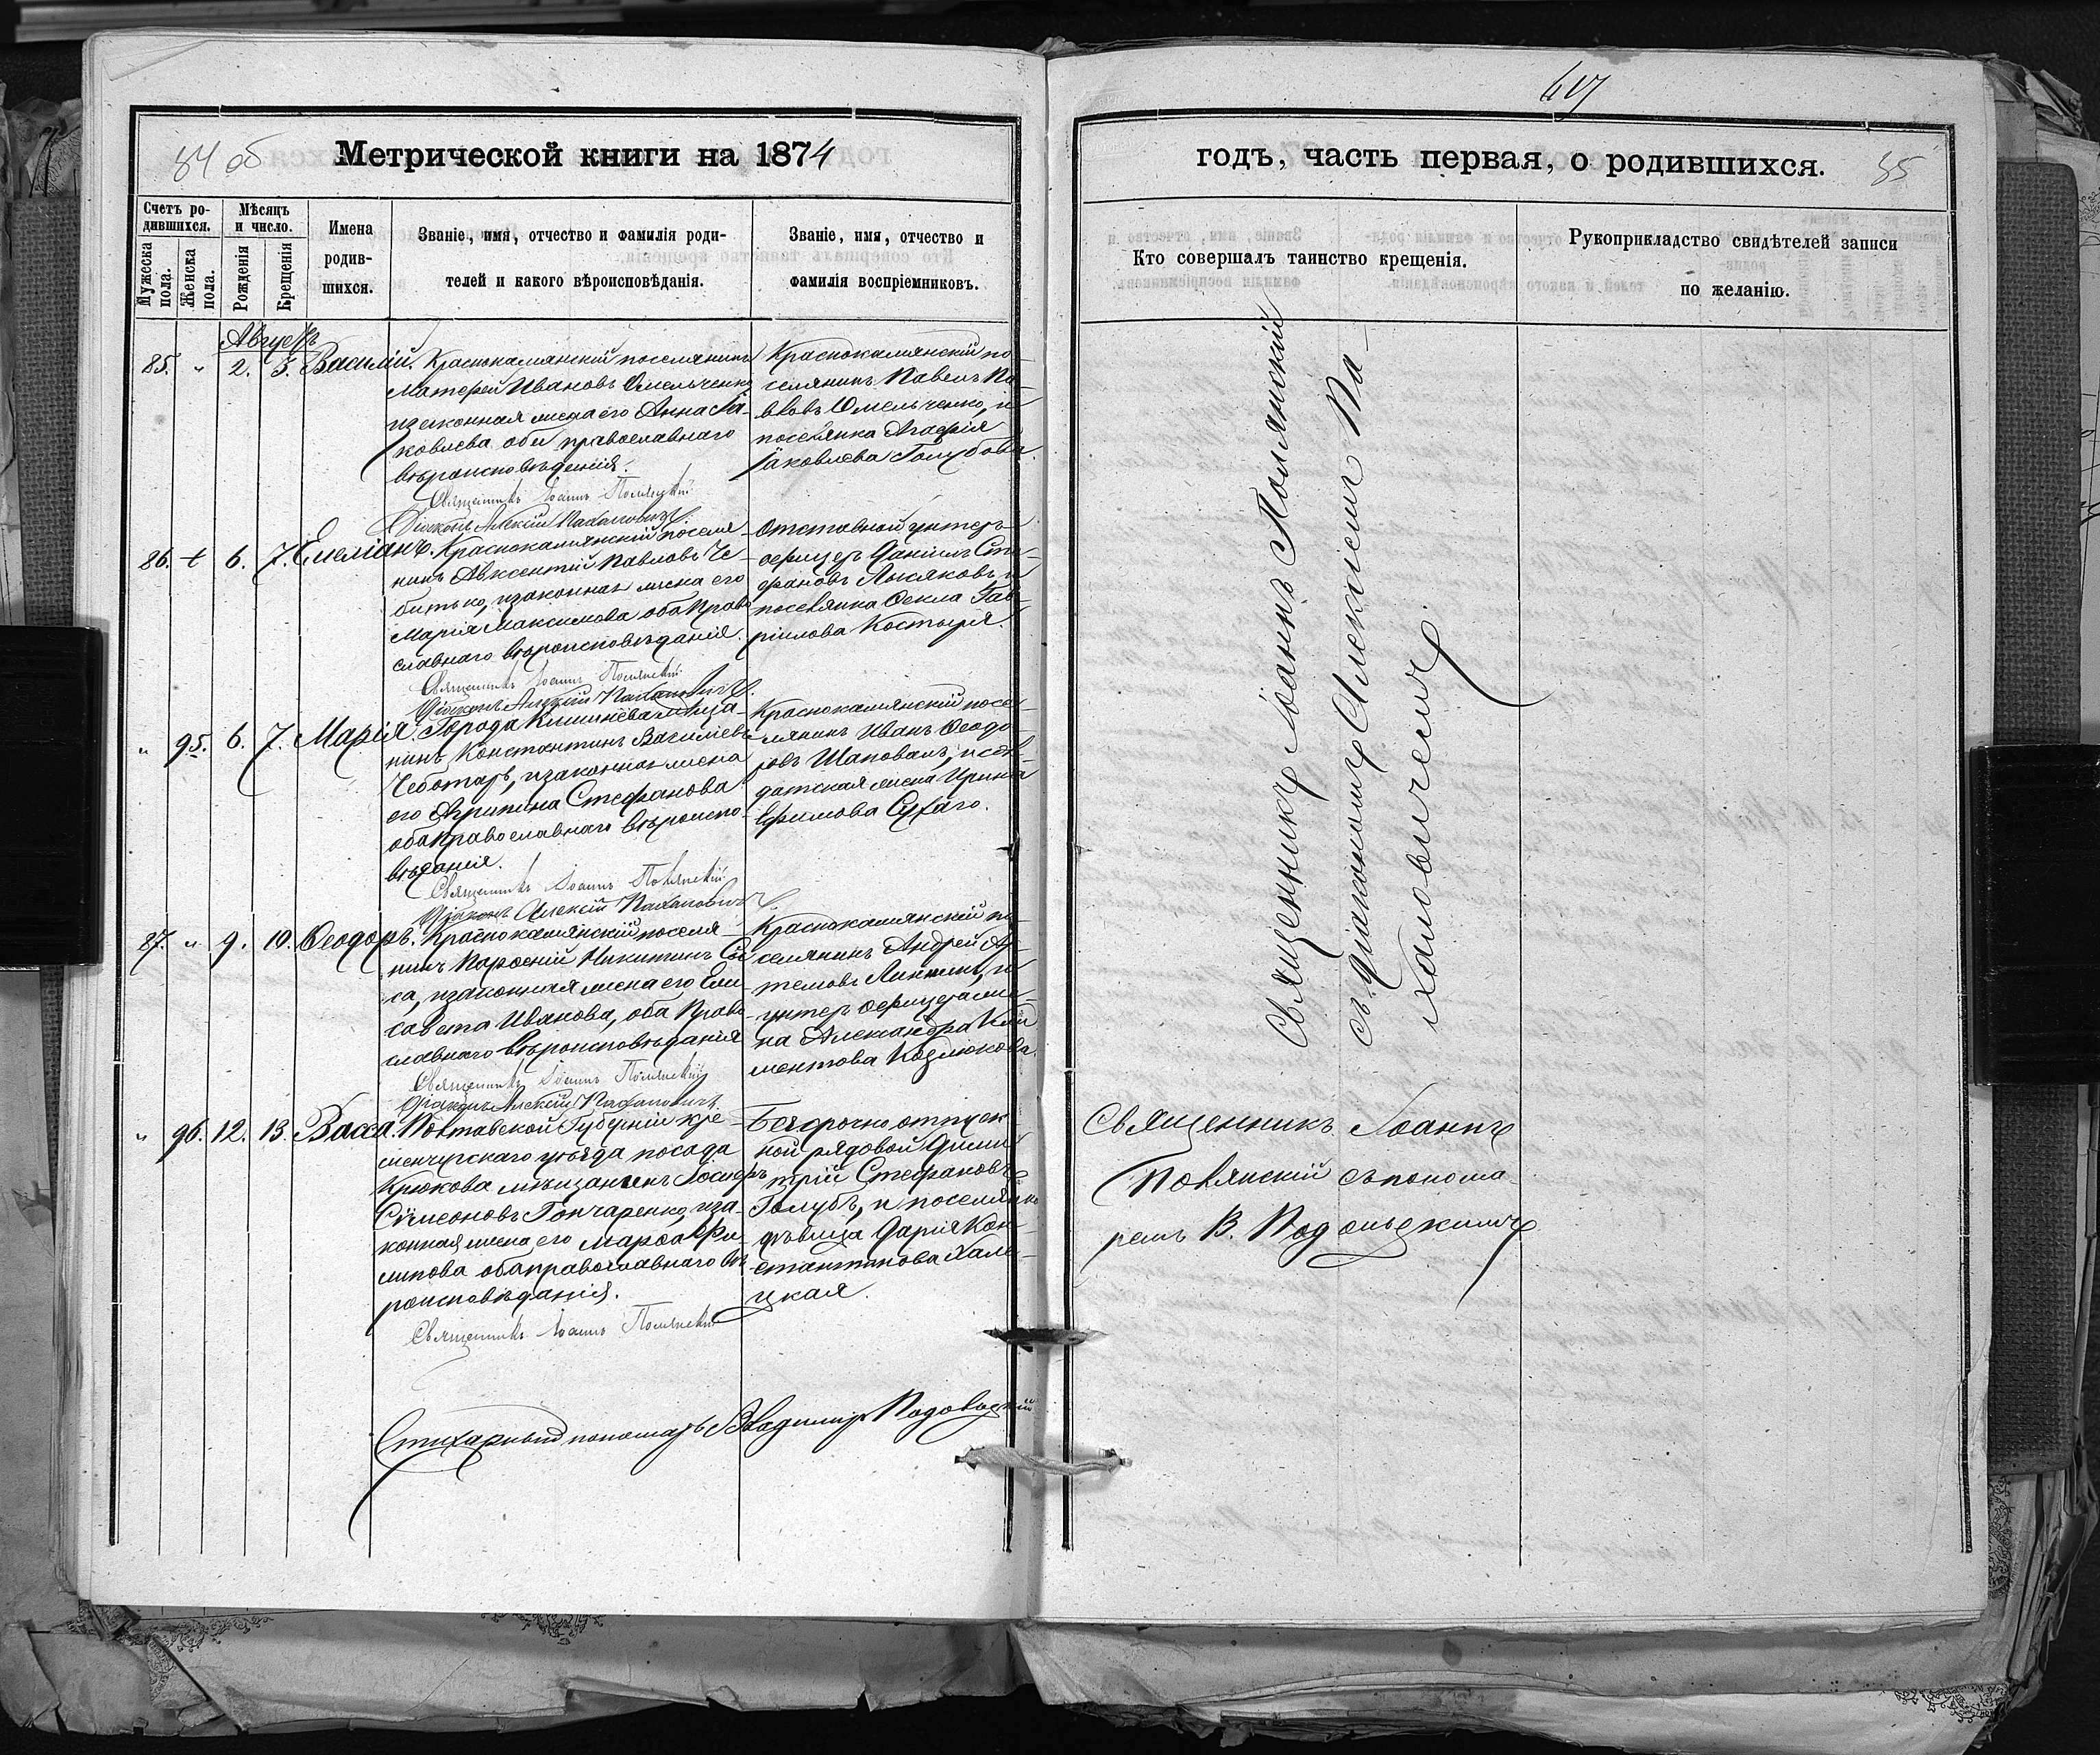 84 об
Метрической книги на 1874
Счетъ ро-
дившихся.
Мужеска пола.
Женска пола.
Мѣсяцъ
и число.
Рожденія
Крещенія
Имена
родив-
шихся.
Званіе, имя, отчество и фамилія роди-
телей и какого вѣроисповѣданія.
Званіе, имя, отчество и
фамилія воспріемниковъ.
Августъ
85. " 2. 3. Василій. Краснокамянскій поселянинъ
Матѳей Ивановъ Омельченко
и законная жена его Анна Іа-
ковлева оба православнаго
вѣроисповѣданія.
Священникъ Іоаннъ Полянскій
Діаконъ Алексій Пахаловичъ.
Краснокамянскій по-
селянинъ Павелъ Па-
вловъ Омельченко, и
поселянка Агафія
Іаковлева Голубова.
86. 6. 7. Емеліанъ. Краснокамянскій поселя-
нинъ Авксентій Павловъ Че-
битько, и законная жена его
Марія Максимова оба право-
славнаго вѣроисповѣданія.
Священникъ Іоаннъ Полянскій
Діаконъ Алексій Пахаловичъ.
Отставной унтеръ-
офицеръ Даніилъ Сте-
фановъ Лысяковъ, и
поселянка Ѳекла Гав-
ріилова Костыря.
" 95. 6. 7. Марія. Города Кишинева мѣща-
нинъ Константинъ Василіевъ
Чеботарь, и законная жена
его Агрипина Стефанова
оба православнаго вѣроиспо-
вѣданія.
Священникъ Іоаннъ Полянскій
Діаконъ Алексій Пахаловичъ.
Краснокамянскій посе-
лянинъ Иванъ Ѳеодо-
ровъ Шаповалъ, и сол-
датская жена Ирина
Ефимова Сухаго.
87. " 9. 10. Ѳеодоръ. Краснокамянскій поселя-
нинъ Парѳеній Никитинъ
са, и законная жена его Ели-
савета Иванова, оба право-
славнаго вѣроисповѣданія
Священникъ Іоаннъ Полянскій
Діаконъ Алексій Пахаловичъ
Краснокамянскій по-
селянинъ Андрей Ар-
темовъ и
унтеръ офицера же-
на Александра Кли-
ментова Козлюкова.
" 96. 12. 13. Васса. Полтавской Губерніи Кре-
менчугскаго уѣзда посада
Крюкова мѣщанинъ Іосифъ
Сѵмеоновъ Гончаренко, и за-
конная жена его Марѳа Фи-
липова оба православнаго вѣ-
роисповѣданія.
Священникъ Іоаннъ Полянскій
Безсрочно отпуск
ной рядовой Дими-
трій Стефановъ
Голубъ, и поселянка
дѣвица Дарія Кон-
стантинова Хале-
цкая.
Стихарный пономарь Владимиръ Подольскій
417
годъ, часть первая, о родившихся.
85
Кто совершалъ таинство крещенія.
Рукоприкладство свидѣтелей записи
по желанію.
Священникъ Іоаннъ Полянскій
съ Діакономъ Алексіемъ Па-
халовичемъ.
Священникъ Іоаннъ
Полянскій съ понома-
ремъ В. Подольскимъ